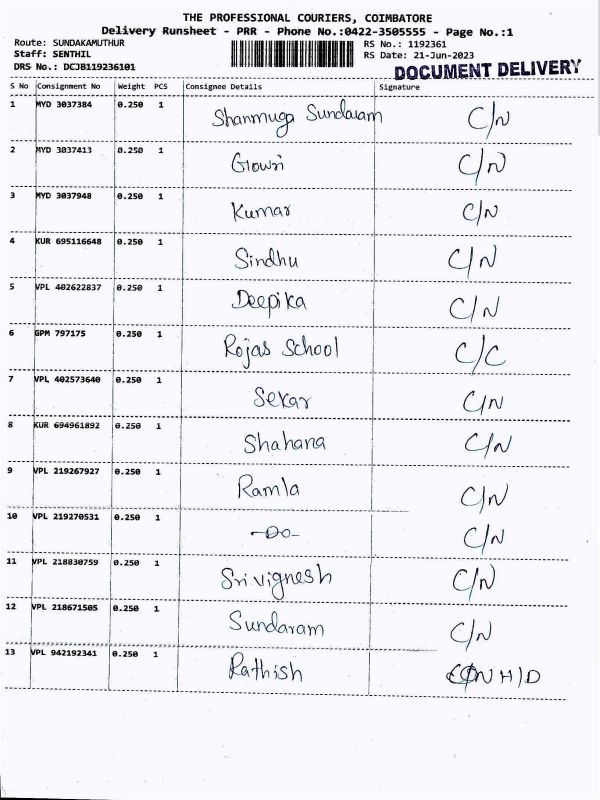 THE PROFESSIONAL COURIERS, COIMBATORE
Delivery Runsheet - PRR - Phone No.:0422-3505555 - Page No.:1
Route: SUNDAKAMUTHUR RS No.: 1192361
Staff: SENTHIL RS Date: 21-Jun-2023
DRS No.: DCJB119236101 DOCUMENT DELIVERY
S No Consignment No Weight PCS Consignee Details Signature
1 MYD 3037384 0.250 1 Shanmuga Sundaram C/N
2 MYD 3037413 0.250 1 Gowri C/N
3 MYD 3037948 0.250 1 Kumar C/N
4 KUR 695116648 0.250 1 Sindhu C/N
5 VPL 402622837 0.250 1 Deepika C/N
6 GPM 797175 0.250 1 Rojas School C/C
7 VPL 402573640 0.250 1 Sekar C/N
8 KUR 694961892 0.250 1 Shahana C/N
9 VPL 219267927 0.250 1 Ramla C/N
10 VPL 219270531 0.250 1 -Do- C/N
11 VPL 218830759 0.250 1 Srivignesh C/N
12 VPL 218671505 0.250 1 Sundaram C/N
13 VPL 942192341 0.250 1 Rathish H/D